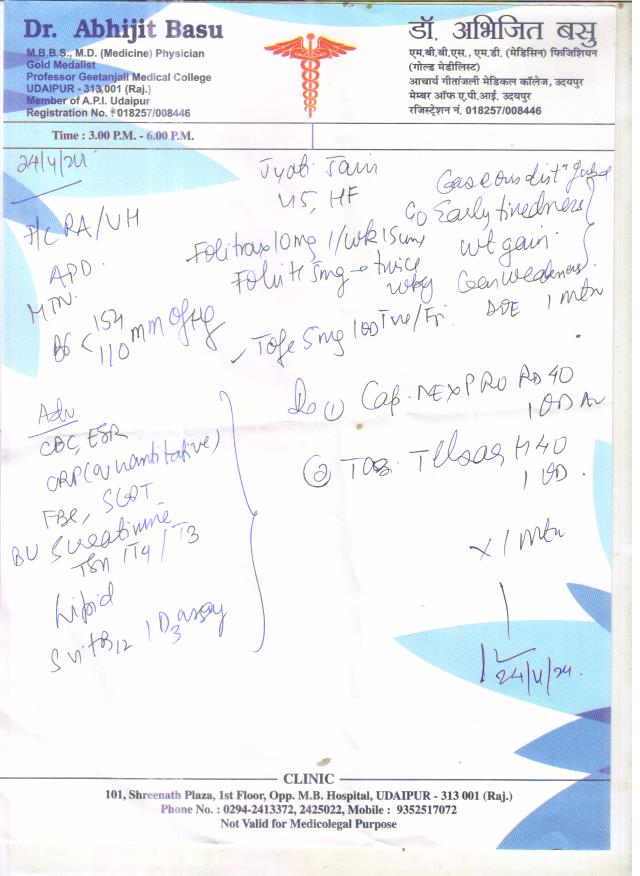 Dr. Abhijit Basu
M.B.B.S., M.D. (Medicine) Physician
Gold Medalist
Professor Geetanjali Medical College
UDAIPUR - 313 001 (Raj.)
Member of A.P.I. Udaipur
Registration No. : 018257/008446
डॉ. अभिजित बसु
एम.बी.बी.एस., एम.डी. (मेडिसिन) फिजिशियन
(गोल्ड मेडीलिस्ट)
आचार्य गीतांजली मेडिकल कॉलेज, उदयपुर
मेम्बर ऑफ ए.पी.आई. उदयपुर
रजिस्ट्रेशन नं. 018257/008446
Time : 3.00 P.M. - 6.00 P.M.
24/4/24
Jyoti Jain
45, HF
Gaseous dist
C/O Early tiredness
wt gain
Gen weakness
DOE 1 Mth
RA/UH
APD
HTN
BP < 154
110 mm of Hg
Folitrax 10mg 1/wk
5mg → twice
Tofe 5mg 1OD
Adv
CBC, ESR
CRP (Quantitative)
SGOT
BU S creatinine
TSH T4 / T3
Lipid
S vit B12 / D3 assay
① Cap. NEXPRO RD 40
1 OD
② Tab. Telsar H 40
1 OD.
x 1 Mth
24/4/24.
CLINIC
101, Shreenath Plaza, 1st Floor, Opp. M.B. Hospital, UDAIPUR - 313 001 (Raj.)
Phone No. : 0294-2413372, 2425022, Mobile : 9352517072
Not Valid for Medicolegal Purpose